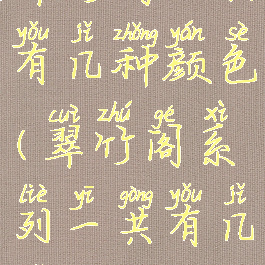 yǒu jǐ zhǒng yán sè
有几种颜色
cuì zhú gé xì
(翠竹阁系
liè yī gòng yǒu jǐ
列一共有几